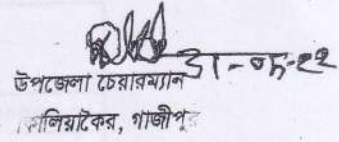 ৩১-০৮-২২
উপজেলা চেয়ারম্যান
কালিয়াকৈর, গাজীপুর